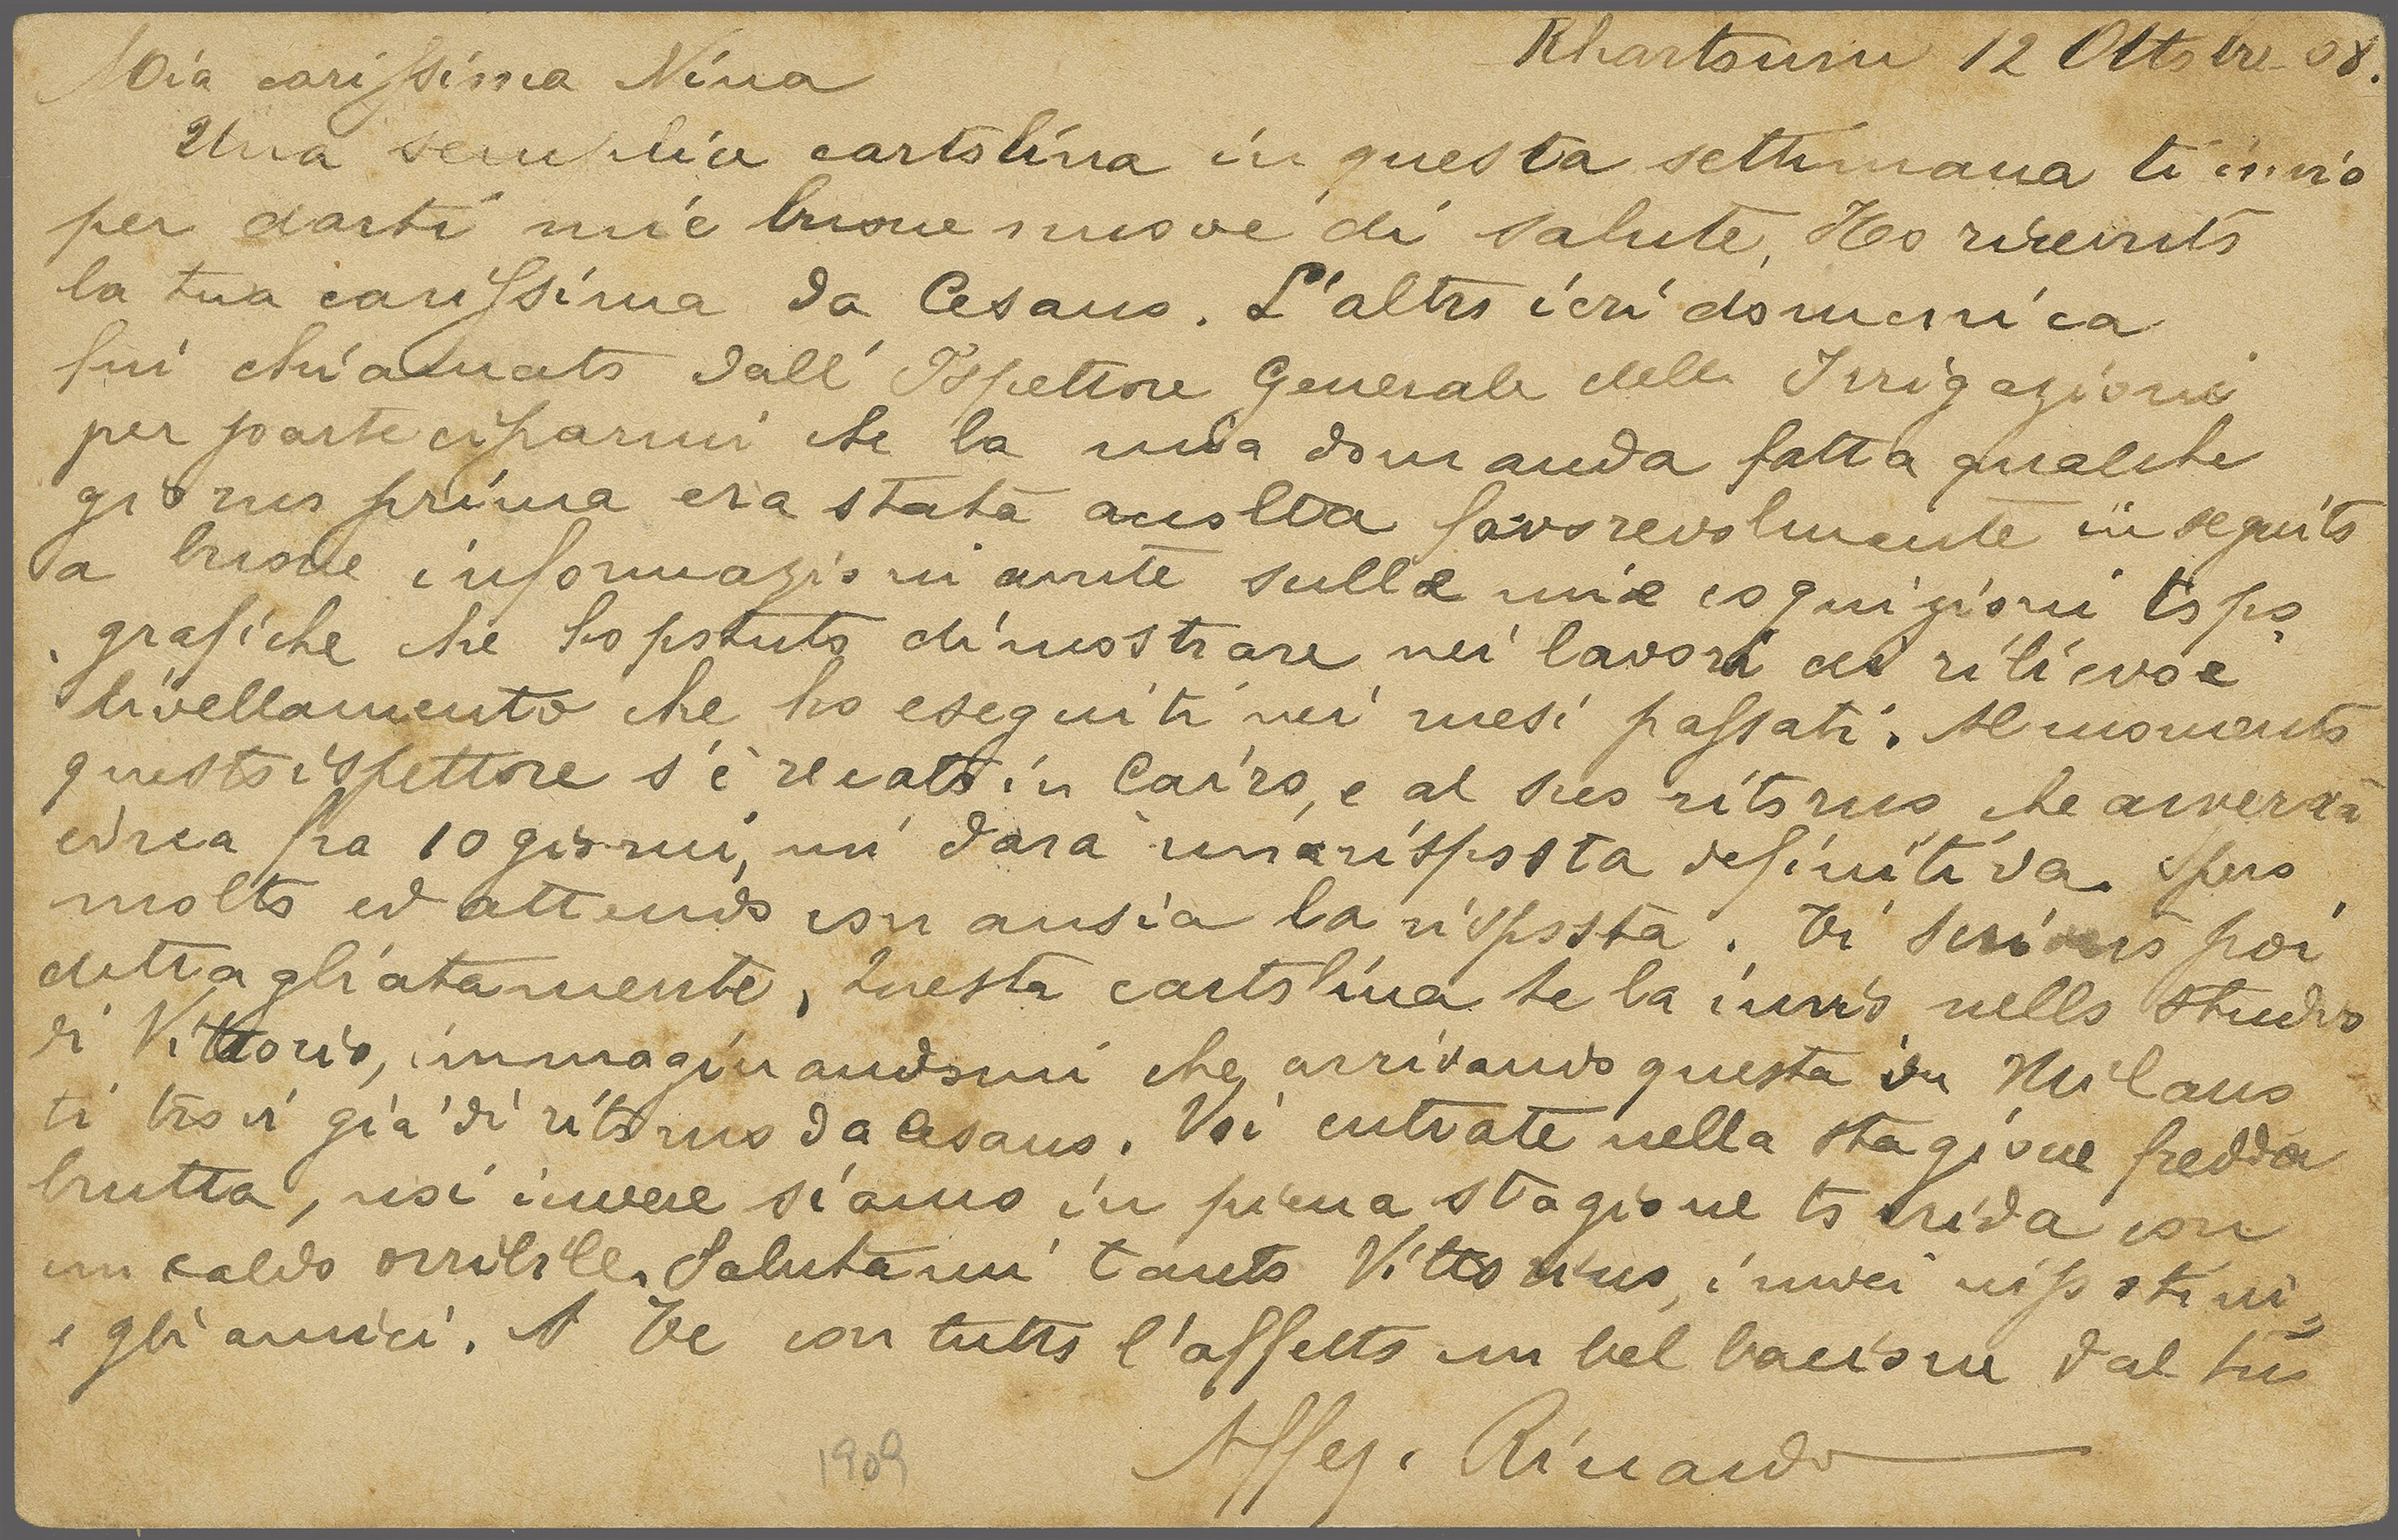 Khartoum 12 Ottobre 08.
Mia carissima Nina
Una semplice cartolina in questa settimana ti invio
per darti mie buone nuove di salute. Ho ricevuto
la tua carissima da Cesano. L'altro ieri domenica
fui chiamato dall' Ispettore Generale delle Irrigazioni
per parteciparmi che la mia domanda fatta qualche
giorno prima era stata accolta favorevolmente in seguito
a buone informazioni avute sulle mie cognizioni topo
grafiche che ho potuto dimostrare nei lavori di rilievo e
livellamento che ho eseguiti nei mesi passati. Al momento
questo ispettore s'è recato in Cairo, e al suo ritorno che avverrà
circa fra 10 giorni, mi darà una risposta definitiva. Spero
molto ed attendo con ansia la risposta. Ti scriverò poi
dettagliatamente. Questa cartolina te la invio nello studio
di Vittorio, immaginandomi che arrivando questa in Milano
ti trovi già di ritorno da Cesano. Voi entrate nella stagione fredda
brutta, noi invece siamo in piena stagione torrida con
un caldo orribile. Salutami tanto Vittorino, i miei nipotini,
e gli amici. A Te con tutto l'affetto un bel bacione dal tuo
Affez. Rinaldo
1909